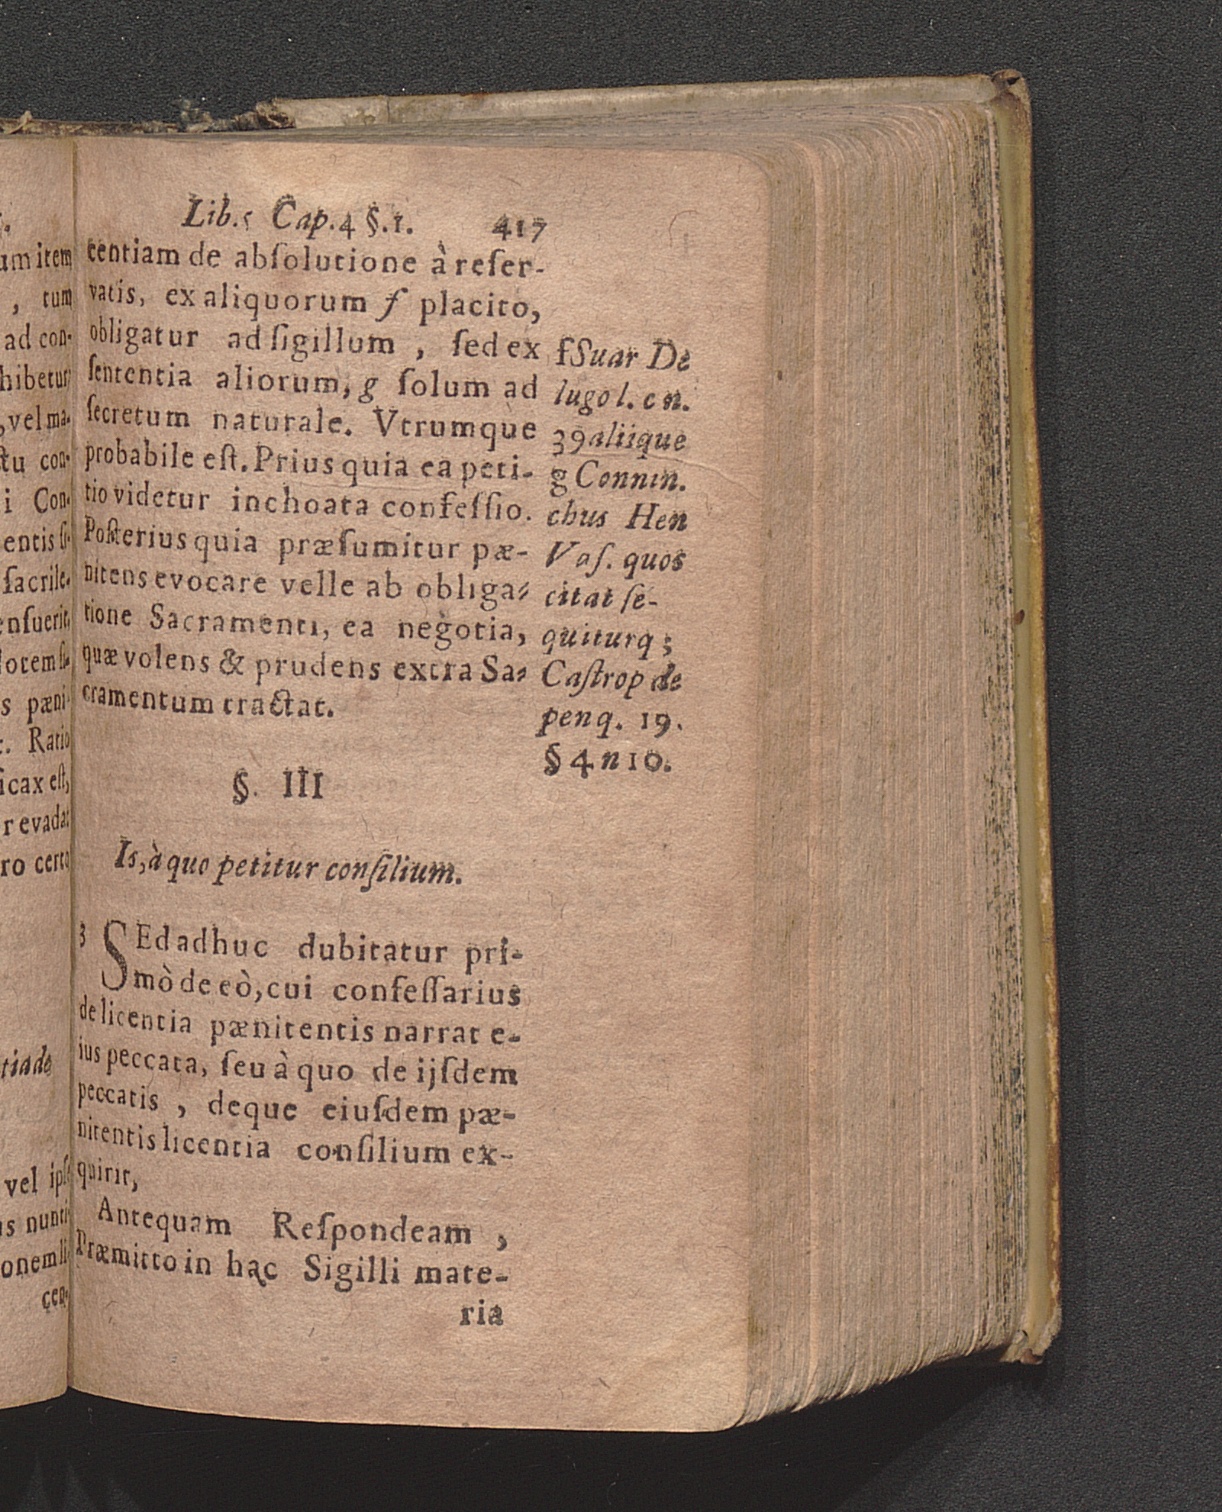 Lib.5 Cap.4 §.1. 417
centiam de abſolutione à reſer-
vatis, ex aliquorum f placito,
obligatur ad ſigillum , ſed ex
ſententia aliorum, g ſolum ad
ſecretum naturale. Vtrumque
probabile eſt. Prius quia ea peti-
tio videtur inchoata confeſſio.
Poſterius quia præſumitur pæ-
nitens evocare velle ab obliga-
tione Sacramenti, ea negotia,
quæ volens & prudens extra Sa-
cramentum tractat.
fSuar De
lugo l. c n.
39 aliique
g Connin.
chus Hen
Vaſ. quos
citat ſe-
quiturq;
Caſtrop de
penq. 19.
§ 4 n 10.
§. III
Is, à quo petitur conſilium.
3 SEd adhuc dubitatur pri-
mò de eò, cui confeſſarius
de licentia pænitentis narrat e-
ius peccata, ſeu à quo de ijſdem
peccatis , deque eiuſdem pæ-
nitentis licentia conſilium ex-
quirit,
Antequam Reſpondeam ,
Præmitto in hac Sigilli mate-
ria
um item
, tum
ad con-
hibetur
, vel ma-
ctu con-
i Con-
entis ſi-
ſacrile-
enſuerit,
lotem ſi-
s pæni-
. Ratio
icax eſt,
r evadat
ro certo
tia de
vel ipſe
us nunti
onem li
cen-